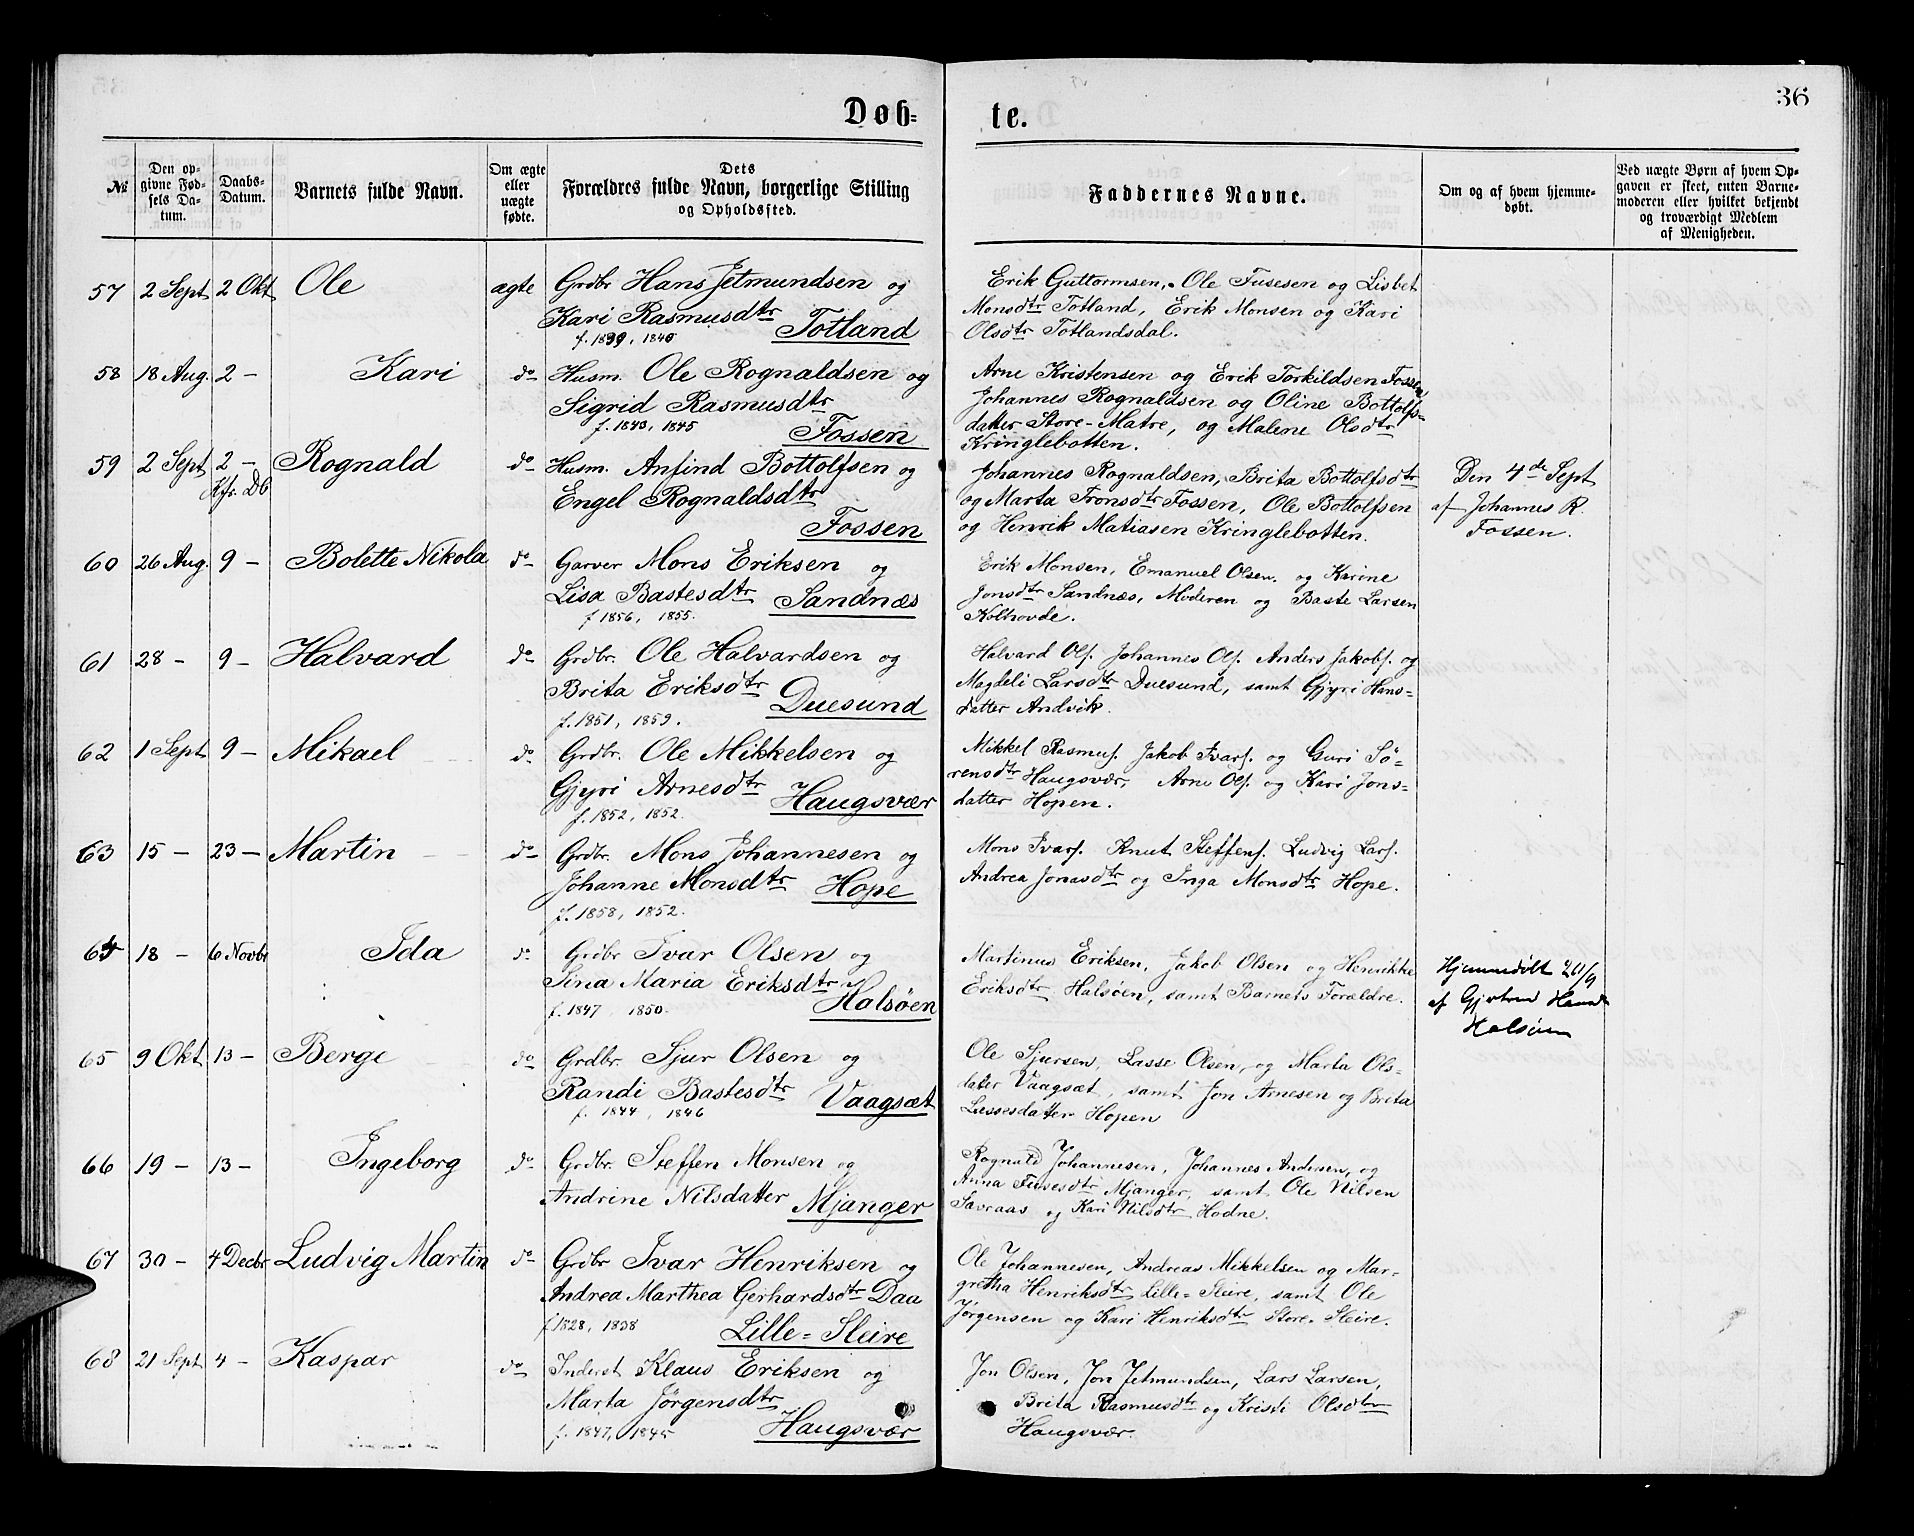 36
Døb-
te.
№
Den op-
givne Fød-
sels Da-
tum.
Daabs-
Datum.
Barnets fulde Navn.
Om ægte
eller
uægte
fødte.
Dets
Forældres fulde Navn, borgerlige Stilling
og Opholdssted.
Faddernes Navne.
Om og af hvem hjemme-
døbt.
Ved uægte Børn af hvem Op-
gaven er skeet, enten Barne-
moderen eller hvilket bekjendt
og troværdigt Medlem
af Menigheden.
57 2 Sept 2 Okt Ole ægte Grdbr Hans Jetmundsen og
Kari Rasmusdtr Totland
f. 1839, 1840
Erik Guttormsen, Ole Fusesen og Lisbet
Monsdtr Totland, Erik Monsen og Kari
Olsdtr Totlandsdal.
58 18 Aug. 2 – Kari do Husm. Ole Rognaldsen og
Sigrid Rasmusdtr
f. 1843, 1845 Fossen
Arne Kristensen og Erik Torkildsen Fossen
Johannes Rognaldsen og Oline Bottolfs-
datter Store-Matre, og Malene Olsdtr
Kringlebotten.
59 2 Sept 2 – Rognald do Husm. Anfind Bottolfsen og
Kfr. DB
Engel Rognaldsdtr
Fossen
Johannes Rognaldsen, Brita Bottolfsdtr
og Marta Tronsdtr Fossen, Ole Bottolfsen
og Henrik Matiasen Kringlebotten.
Den 4de Sept
af Johannes R.
Fossen.
60 26 Aug. 9 – Bolette Nikola do Garver Mons Eriksen og
Lisa Bastesdtr Sandnæs
f 1856, 1855.
Erik Monsen, Emanuel Olsen og Karine
Jonsdtr Sandnæs, Moderen og Baste Larsen
Kolhovde.
61 28 – 9 – Halvard do Grdbr. Ole Halvardsen og
Brita Eriksdtr Duesund
f. 1851, 1859.
Halvard Ols. Johannes Ols. Anders Jakobs. og
Magdeli Larsdtr Duesund, samt Gjyri Hans-
datter Andvik.
62 1 Sept 9 – Mikael do Grdbr. Ole Mikkelsen og
Gjyri Arnesdtr Haugsvær
f. 1852, 1852.
Mikkel Rasmus. Jakob Ivars. og Guri Sö-
rensdtr Haugsvær, Arne Ols. og Kari Jons-
datter Hopen.
63 15 – 23 – Martin do Grdbr. Mons Johannesen og
Johanne Monsdtr Hope
f. 1858, 1852.
Mons Ivars. Knut Steffens. Ludvig Lars.
Andrea Jonasdtr og Inga Monsdtr Hope.
64 18 – 6 Novbr Ida do Grdbr Ivar Olsen og
Sina Maria Eriksdtr
f. 1847 1850. Halsöen
Martinus Eriksen, Jakob Olsen og Henrikke
Eriksdtr Halsöen, samt Barnets Forældre.
Hjemmedöbt 20/9
af Gjertrud
Halsöen
65 9 Okt 13 – Berge do Grdbr. Sjur Olsen og
Randi Bastesdtr Vaagsæt
f. 1844, 1846
Ole Sjursen, Lasse Olsen, og Marta Ols-
datter Vaagsæt, samt Jon Arnesen og Brita
Lassesdatter Hopen
66 19 – 13 – Ingeborg do Grdbr. Steffen Monsen og
Andrine Nilsdatter Mjanger
Rognald Johannesen, Johannes Andersen, og
Anna Fusesdtr Mjanger, samt Ole Nilsen
Sævraas og Kari Nilsdtr Hodne.
67 30 – 4 Decbr Ludvig Martin do Grdbr Ivar Henriksen og
Andrea Marthea Gerhardsdtr Daa
f. 1828, 1838 Lille-Sleire
Ole Johannesen, Andreas Mikkelsen og Mar-
gretha Henriksdtr Lille-Sleire, samt Ole
Jørgensen og Kari Henriksdtr Store-Sleire.
68 21 Sept 4 – Kaspar do Inderst Klaus Eriksen og
Marta Jørgensdtr
f. 1847, 1845 Haugsvær
Jon Olsen, Jon Jetmundsen, Lars Larsen,
Brita Rasmusdtr og Kristi Olsdtr
Haugsvær.